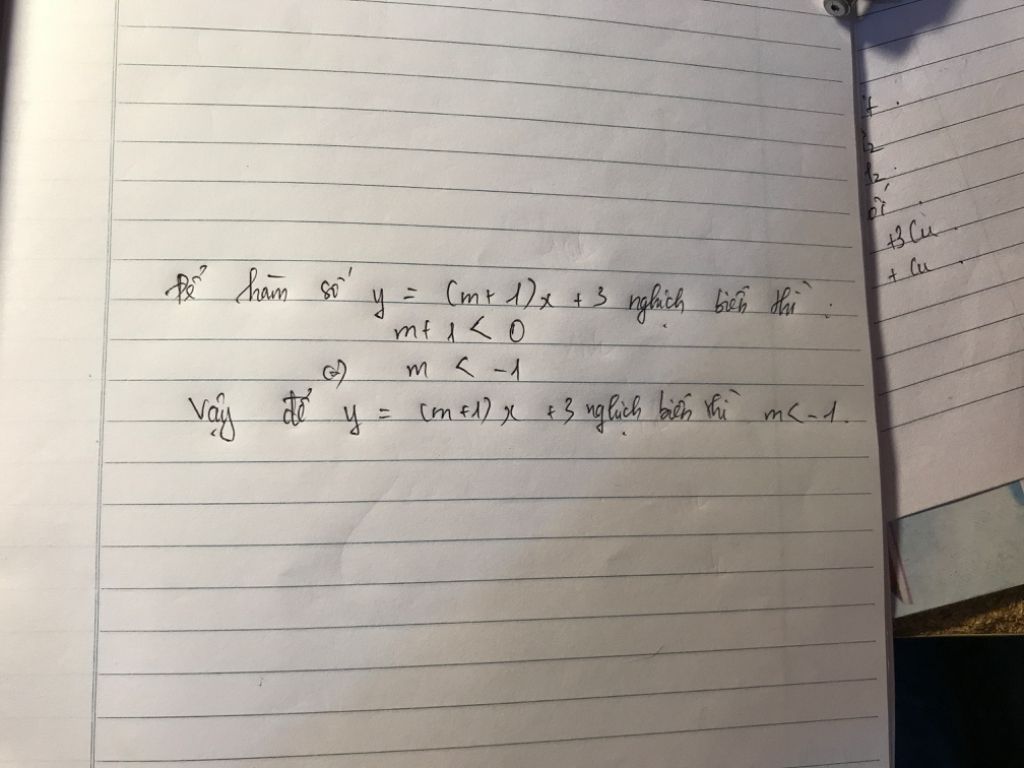 Để hàm số y = (m+1)x + 3 nghịch biến thì :
m+1 < 0
⇔ m < -1
Vậy để y = (m+1)x +3 nghịch biến thì m < -1.
+3Cu
+ Cu